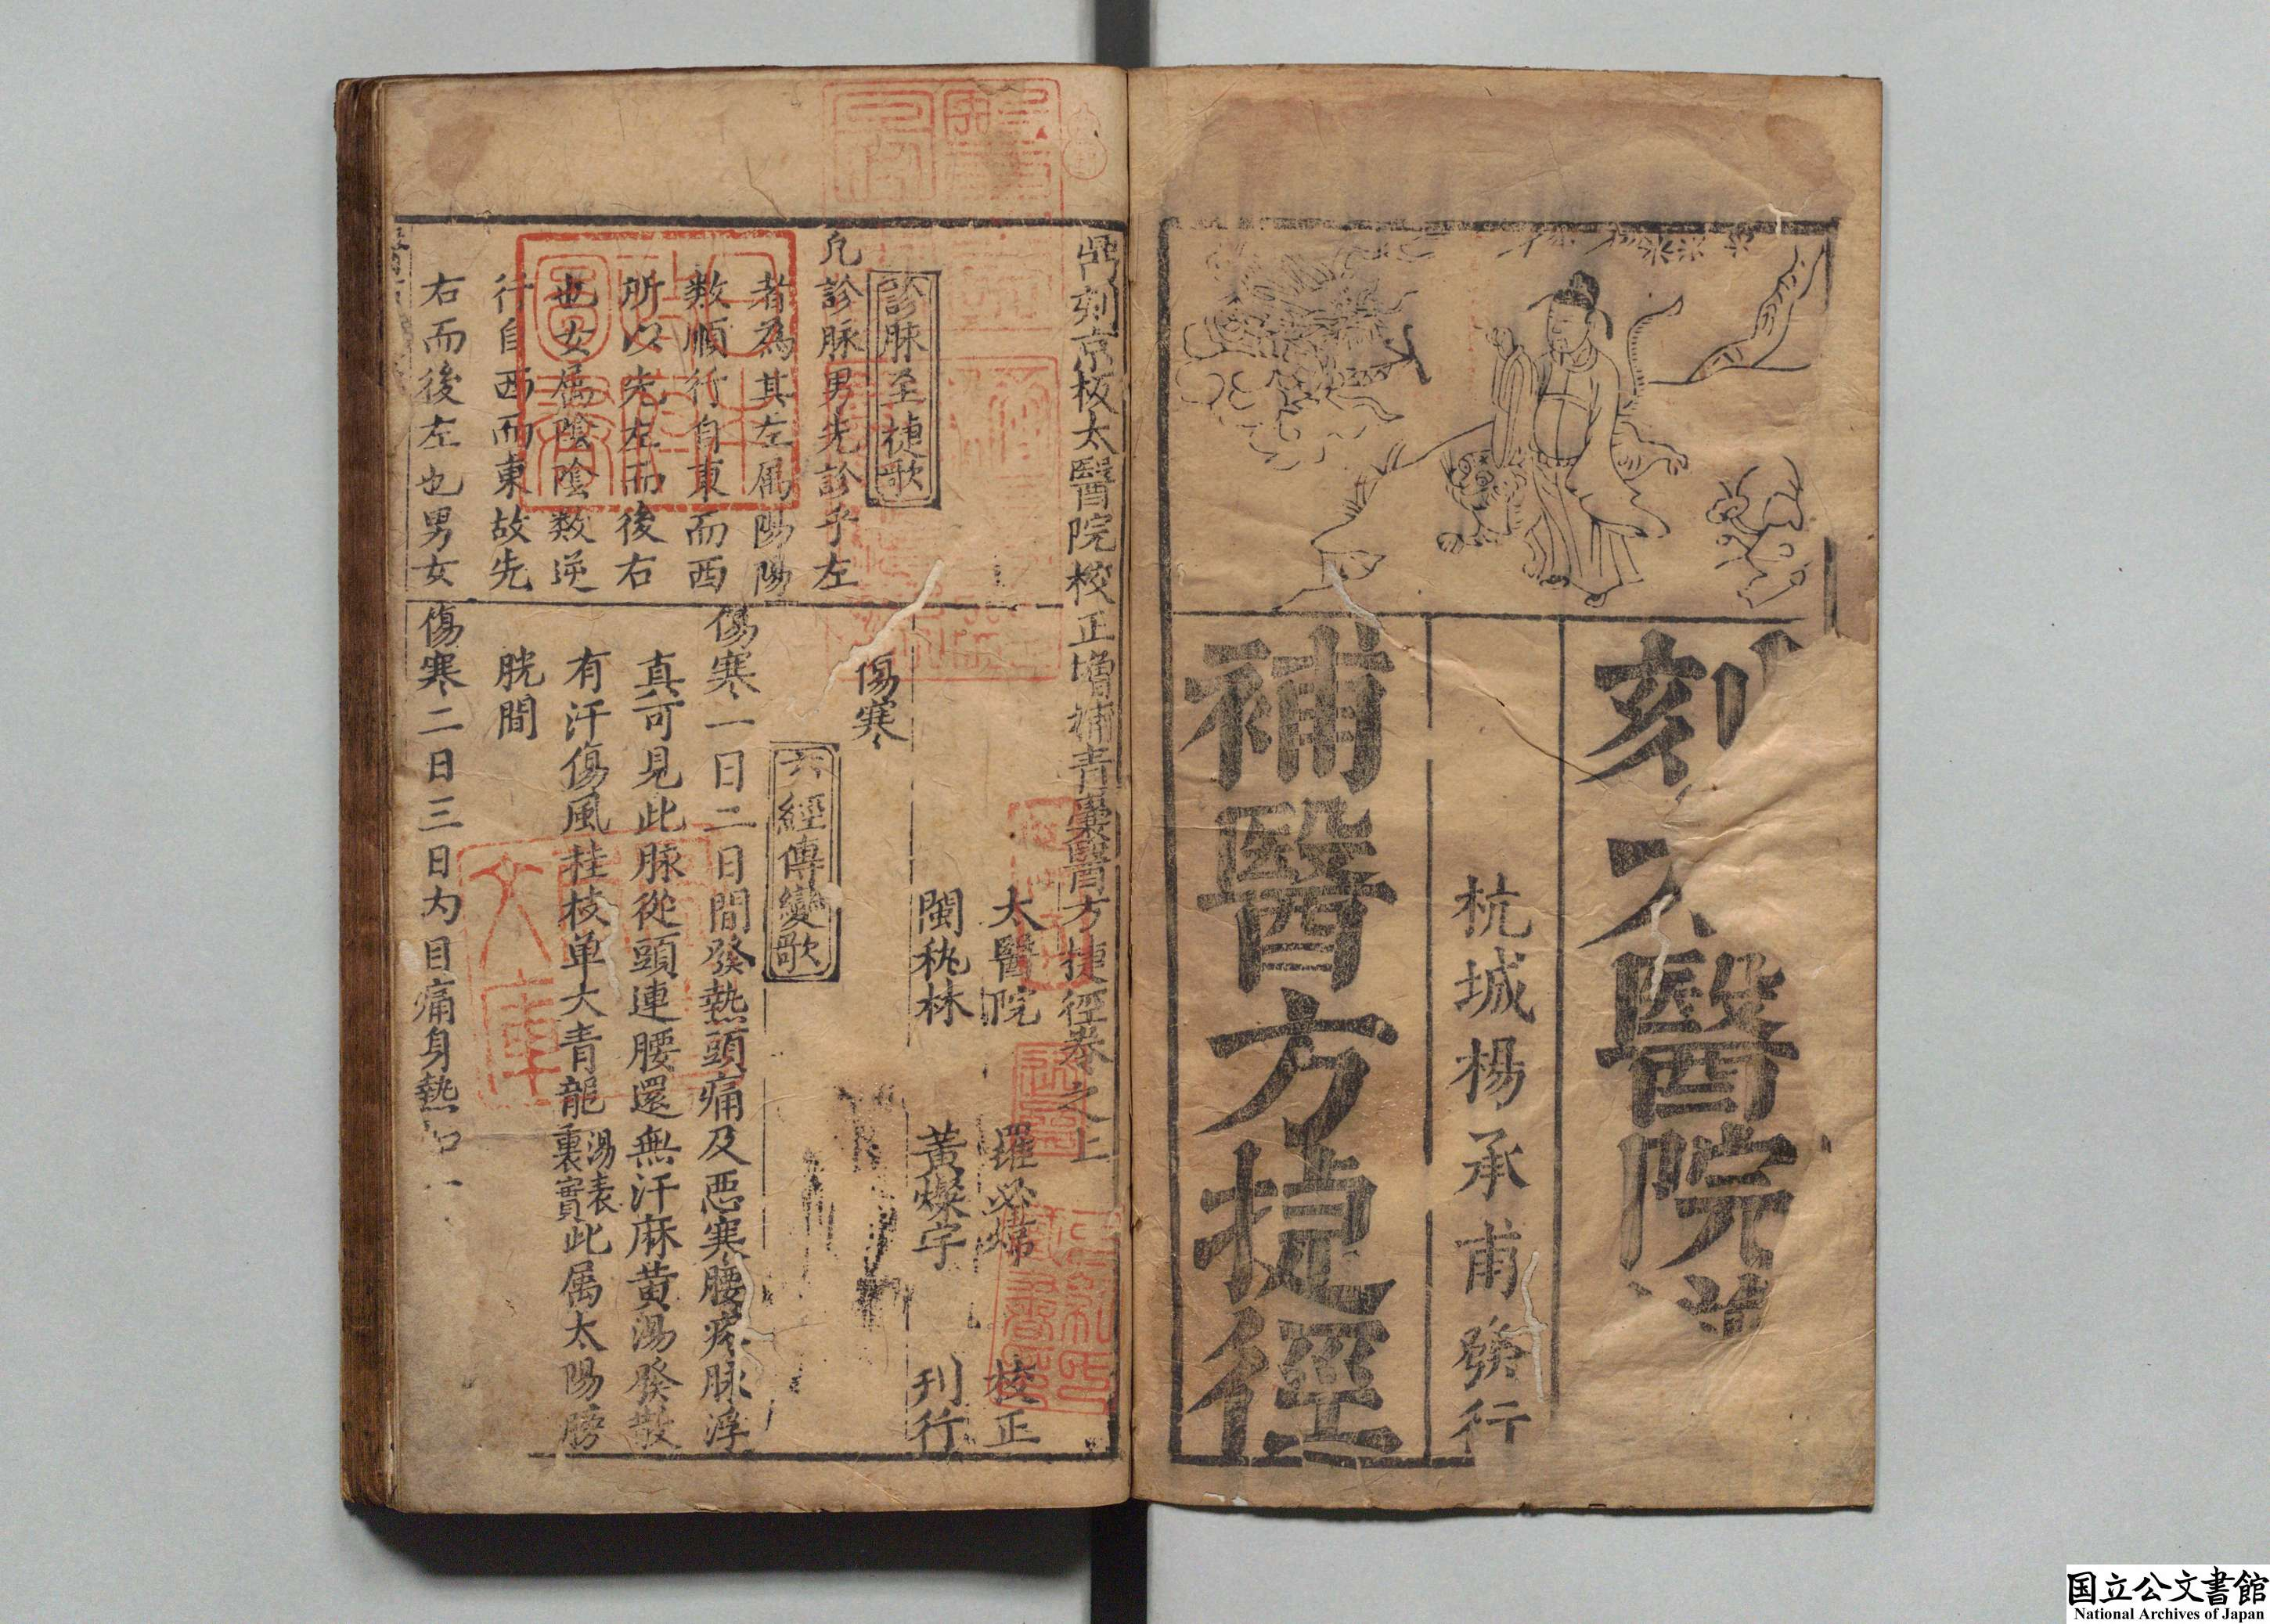 刻太醫院増
杭城楊承甫發行
補醫方捷徑
鼎刻京板太醫院校正增補青囊醫方捷徑卷之上
太醫院 羅必煒 校正
閩秇林 黃燦宇 刊行
診脉至捷歌
凡診脉男先診乎左
者為其左属陽陽
数順行自東而西
所以先左而後右
也女属陰陰数逆
行自西而東故先
右而後左也男女
傷寒
六經傳變歌
傷寒一日二日間發熱頭痛及惡寒腰疼脉浮
真可見此脉從頭連腰還無汗麻黄湯發散
有汗傷風桂枝单大青龍湯表裏實此属太陽膀
胱間
傷寒二日三日内目痛身熱
国立公文書館
National Archives of Japan